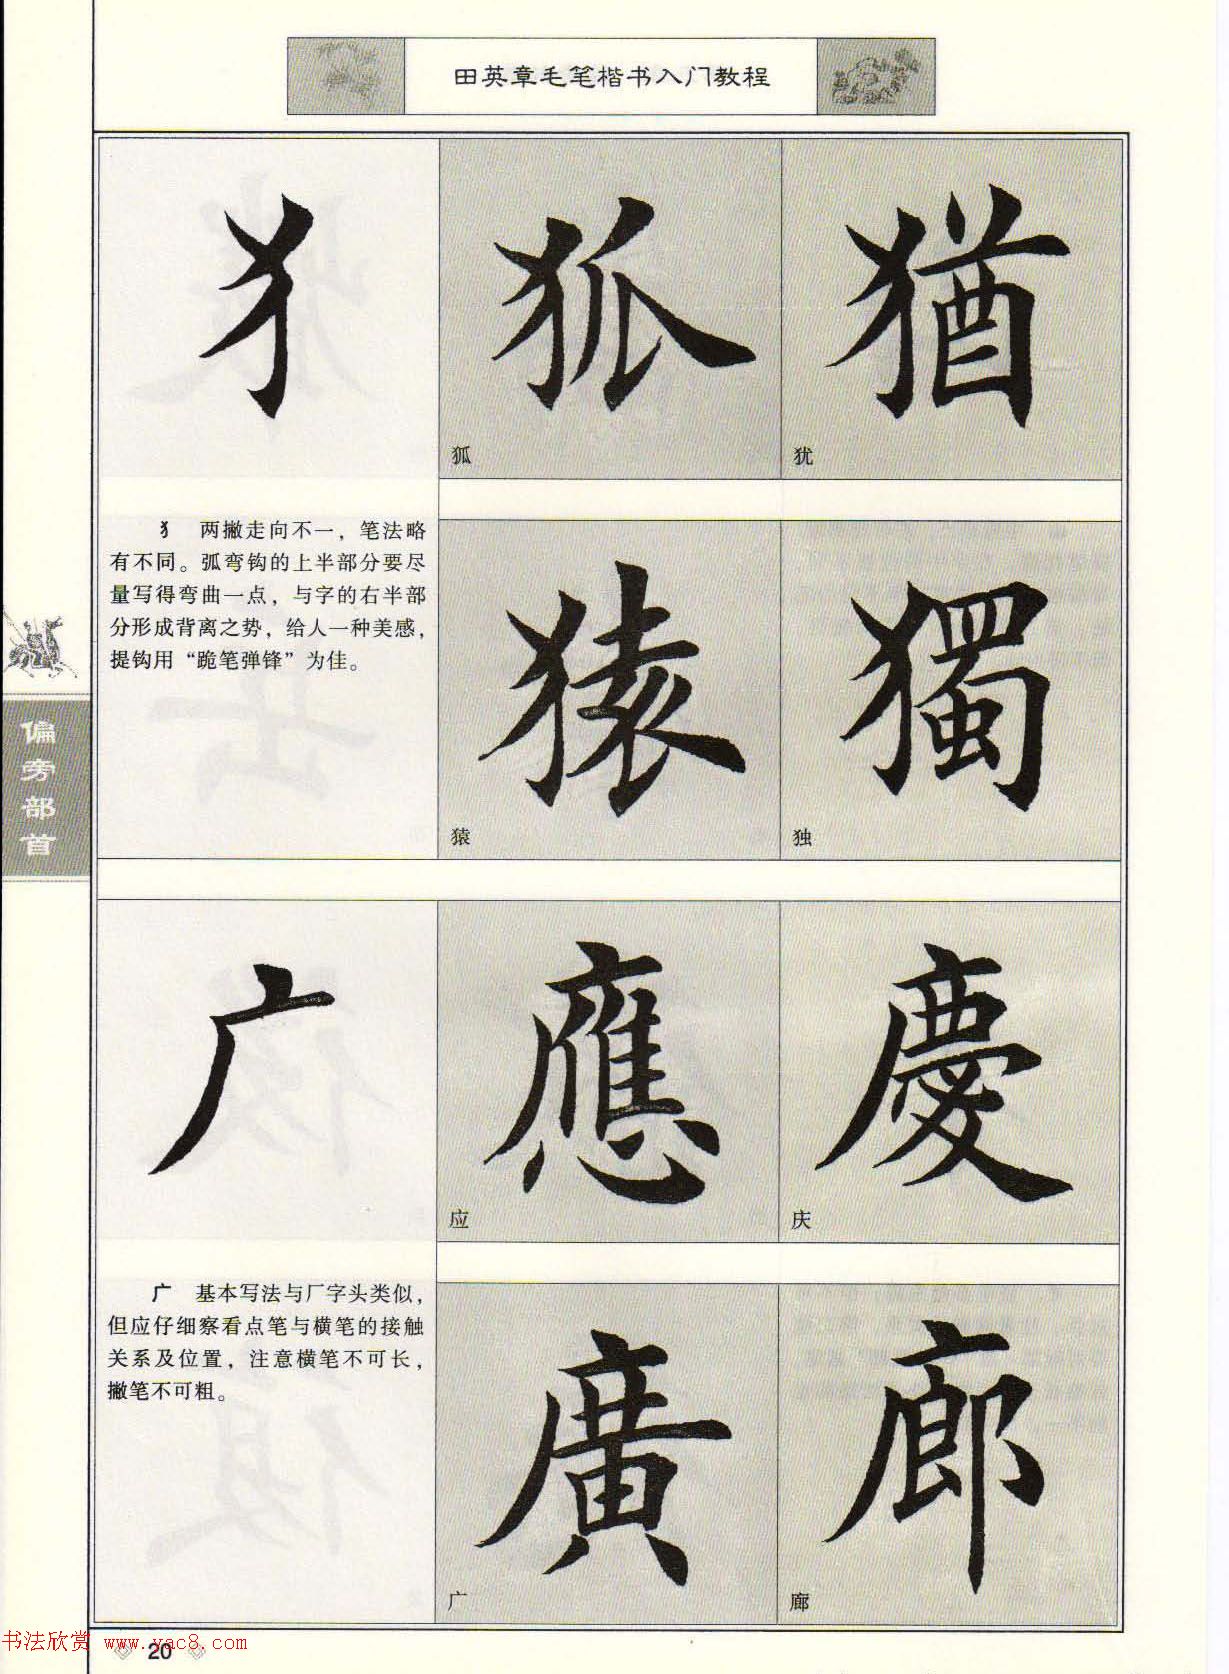 田英章毛笔楷书入门教程
犭
狐
狐
猶
犹
犭 两撇走向不一，笔法略
有不同。弧弯钩的上半部分要尽
量写得弯曲一点，与字的右半部
分形成背离之势，给人一种美感，
提钩用“跪笔弹锋”为佳。
猿
猿
獨
独
偏旁部首
广
應
应
慶
庆
广 基本写法与厂字头类似，
但应仔细察看点笔与横笔的接触
关系及位置，注意横笔不可长，
撇笔不可粗。
廣
广
廊
廊
书法欣赏 www.yac8.com
20